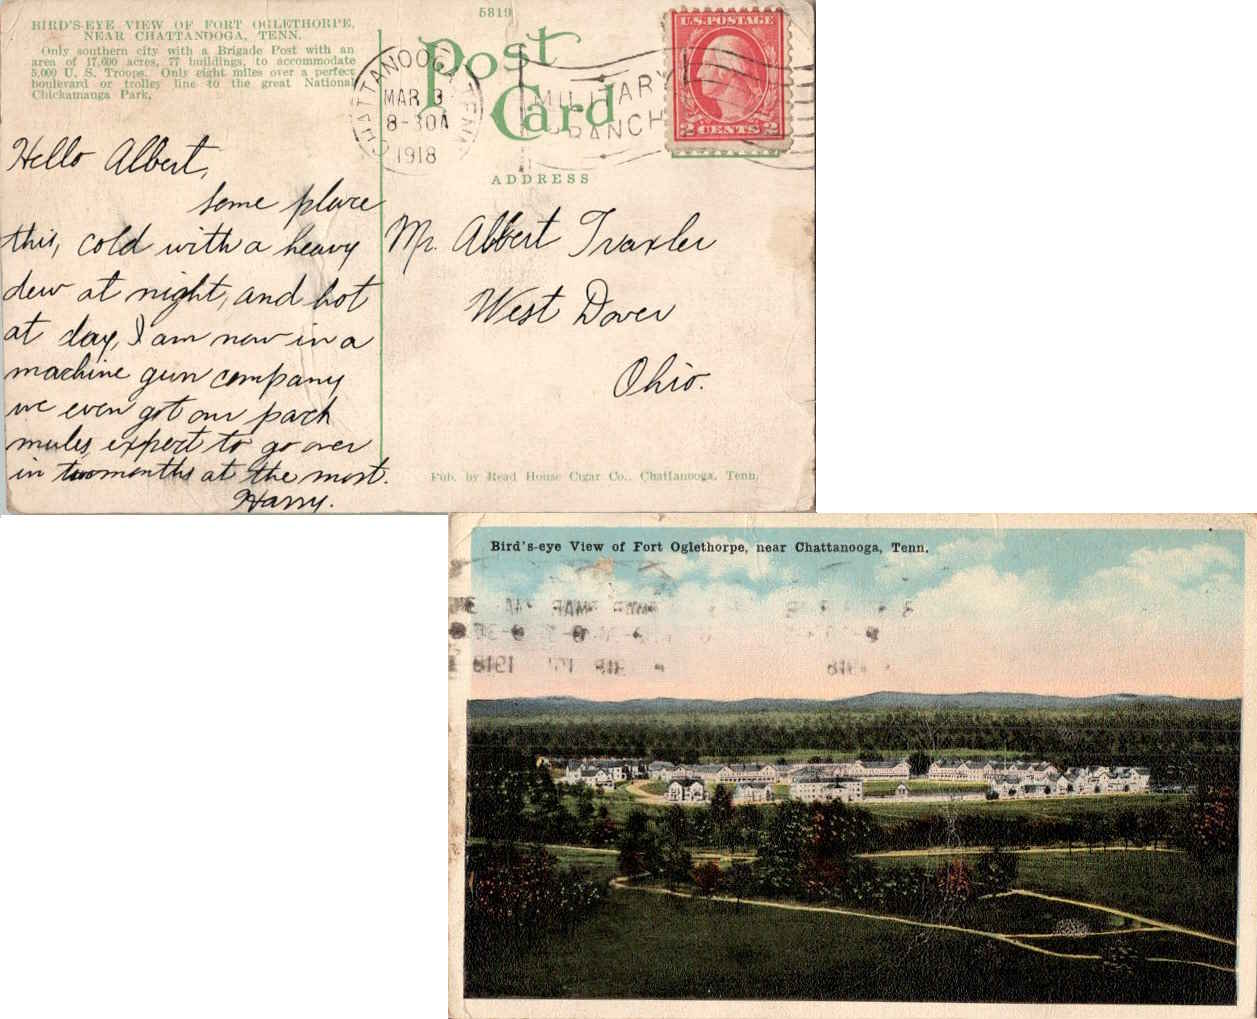 BIRD'S-EYE VIEW OF FORT OGLETHORPE,
NEAR CHATTANOOGA, TENN.
Only southern city with a Brigade Post with an
area of 17,600 acres, 77 buildings, to accommodate
5,000 U. S. Troops. Only eight miles over a perfect
boulevard or trolley line to the great National
Chickamauga Park.
5819
Post
Card
CHATTANOOGA, TENN.
MAR 3
8-30A
1918
MILITARY
BRANCH
U.S. POSTAGE
2 CENTS 2
ADDRESS
Hello Albert,
some place
this, cold with a heavy
dew at night, and hot
at day, I am now in a
machine gun company
we even got our pack
mules, expect to go over
in two months at the most.
Harry.
Mr. Albert Traxler
West Dover
Ohio.
Pub. by Read House Cigar Co., Chattanooga, Tenn.
Bird's-eye View of Fort Oglethorpe, near Chattanooga, Tenn.